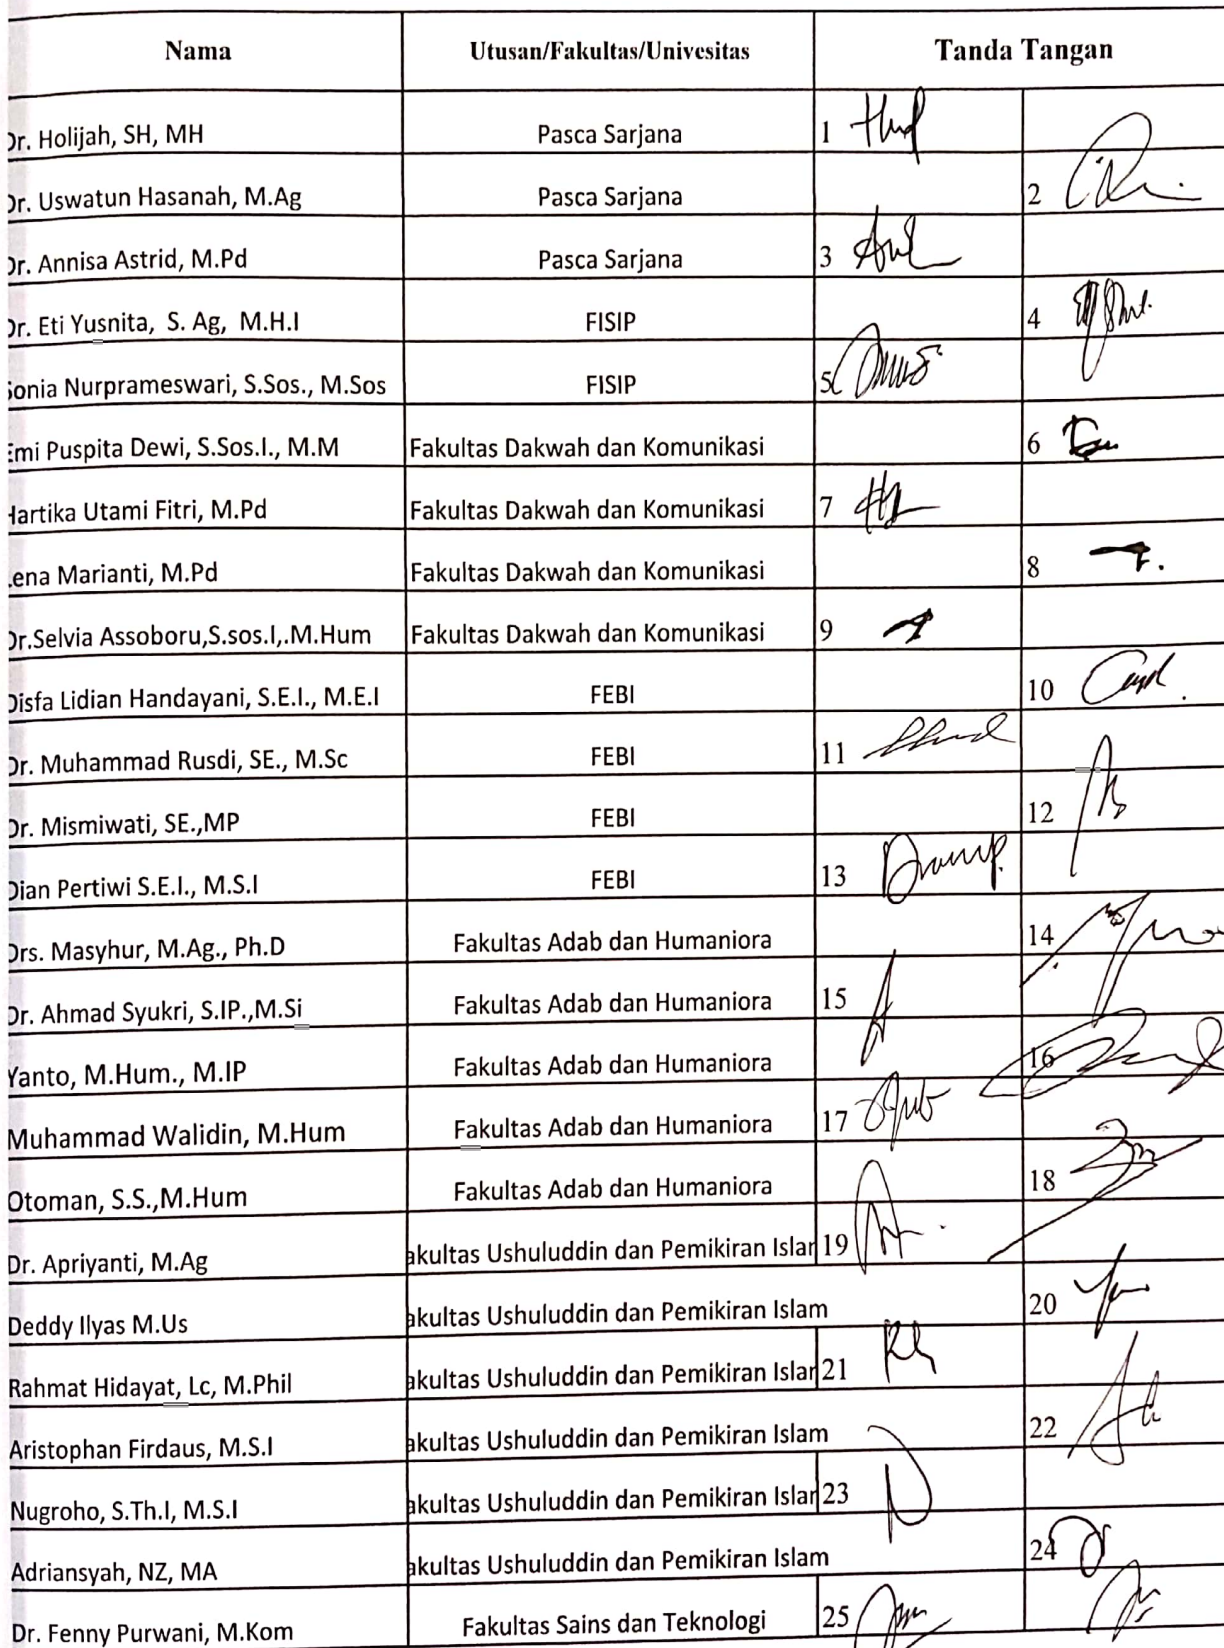 Nama Utusan/Fakultas/Univesitas Tanda Tangan
Dr. Holijah, SH, MH Pasca Sarjana 1
Dr. Uswatun Hasanah, M.Ag Pasca Sarjana 2
Dr. Annisa Astrid, M.Pd Pasca Sarjana 3
Dr. Eti Yusnita, S. Ag, M.H.I FISIP 4
Sonia Nurprameswari, S.Sos., M.Sos FISIP 5
Emi Puspita Dewi, S.Sos.I., M.M Fakultas Dakwah dan Komunikasi 6
Hartika Utami Fitri, M.Pd Fakultas Dakwah dan Komunikasi 7
Lena Marianti, M.Pd Fakultas Dakwah dan Komunikasi 8
Dr.Selvia Assoboru,S.sos.I,.M.Hum Fakultas Dakwah dan Komunikasi 9
Disfa Lidian Handayani, S.E.I., M.E.I FEBI 10
Dr. Muhammad Rusdi, SE., M.Sc FEBI 11
Dr. Mismiwati, SE.,MP FEBI 12
Dian Pertiwi S.E.I., M.S.I FEBI 13
Drs. Masyhur, M.Ag., Ph.D Fakultas Adab dan Humaniora 14
Dr. Ahmad Syukri, S.IP.,M.Si Fakultas Adab dan Humaniora 15
Yanto, M.Hum., M.IP Fakultas Adab dan Humaniora 16
Muhammad Walidin, M.Hum Fakultas Adab dan Humaniora 17
Otoman, S.S.,M.Hum Fakultas Adab dan Humaniora 18
Dr. Apriyanti, M.Ag akultas Ushuluddin dan Pemikiran Islar 19
Deddy Ilyas M.Us akultas Ushuluddin dan Pemikiran Islam 20
Rahmat Hidayat, Lc, M.Phil akultas Ushuluddin dan Pemikiran Islar 21
Aristophan Firdaus, M.S.I akultas Ushuluddin dan Pemikiran Islam 22
Nugroho, S.Th.I, M.S.I akultas Ushuluddin dan Pemikiran Islar 23
Adriansyah, NZ, MA akultas Ushuluddin dan Pemikiran Islam 24
Dr. Fenny Purwani, M.Kom Fakultas Sains dan Teknologi 25